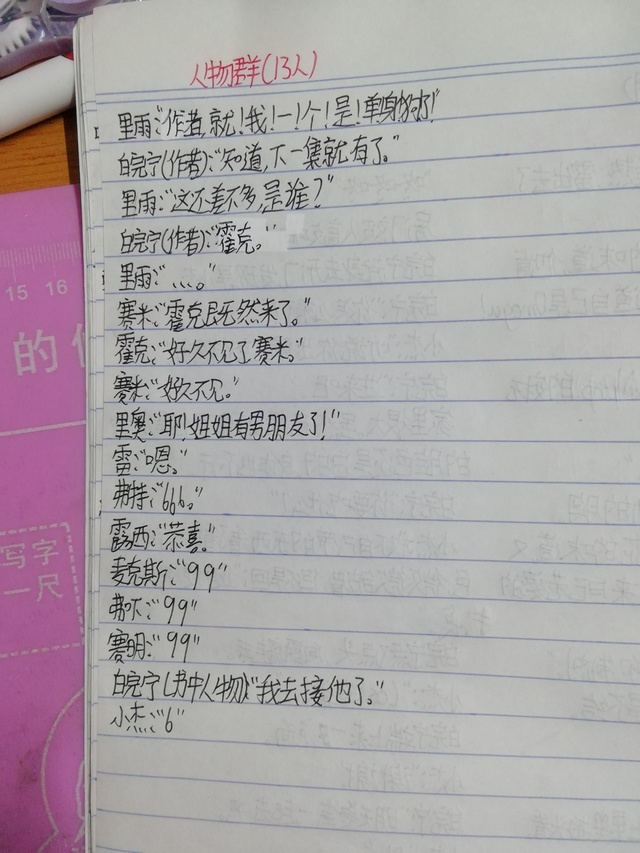 人物群(13人)
里雨:“作者,就!我!一!个!是!单身狗了!
白皖宁(作者):“知道,下一集就有了。”
里雨:“这还差不多,是谁?”
白皖宁(作者):“霍克。”
里雨:“....。”
赛米:“霍克既然来了。”
霍克:“好久不见了赛米。”
赛米:“好久不见。”
里奥:“耶!姐姐有男朋友了!”
雷:“嗯。”
弗特:“666。”
露西:“恭喜。”
麦克斯:“99”
弗下:“99”
赛明:“99”
白皖宁(书中人物):“我去接他了。”
小杰:“6”
15 16
的
写字
一尺